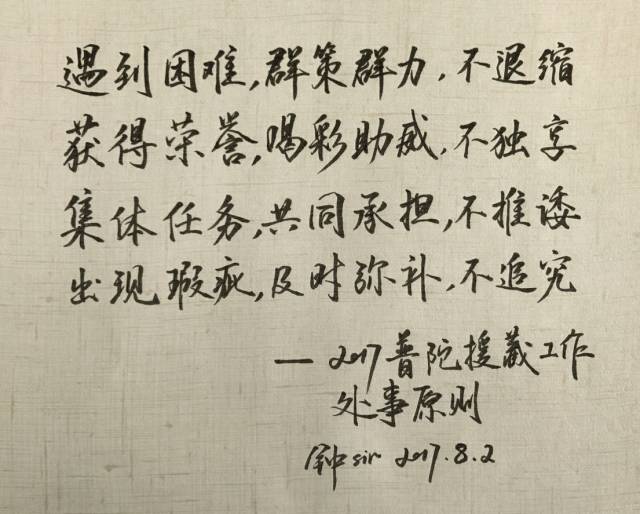 遇到困难,群策群力,不退缩
获得荣誉,喝彩助威,不独享
集体任务,共同承担,不推诿
出现瑕疵,及时弥补,不追究
— 2017普陀援藏工作
处事原则
钟sir 2017.8.2